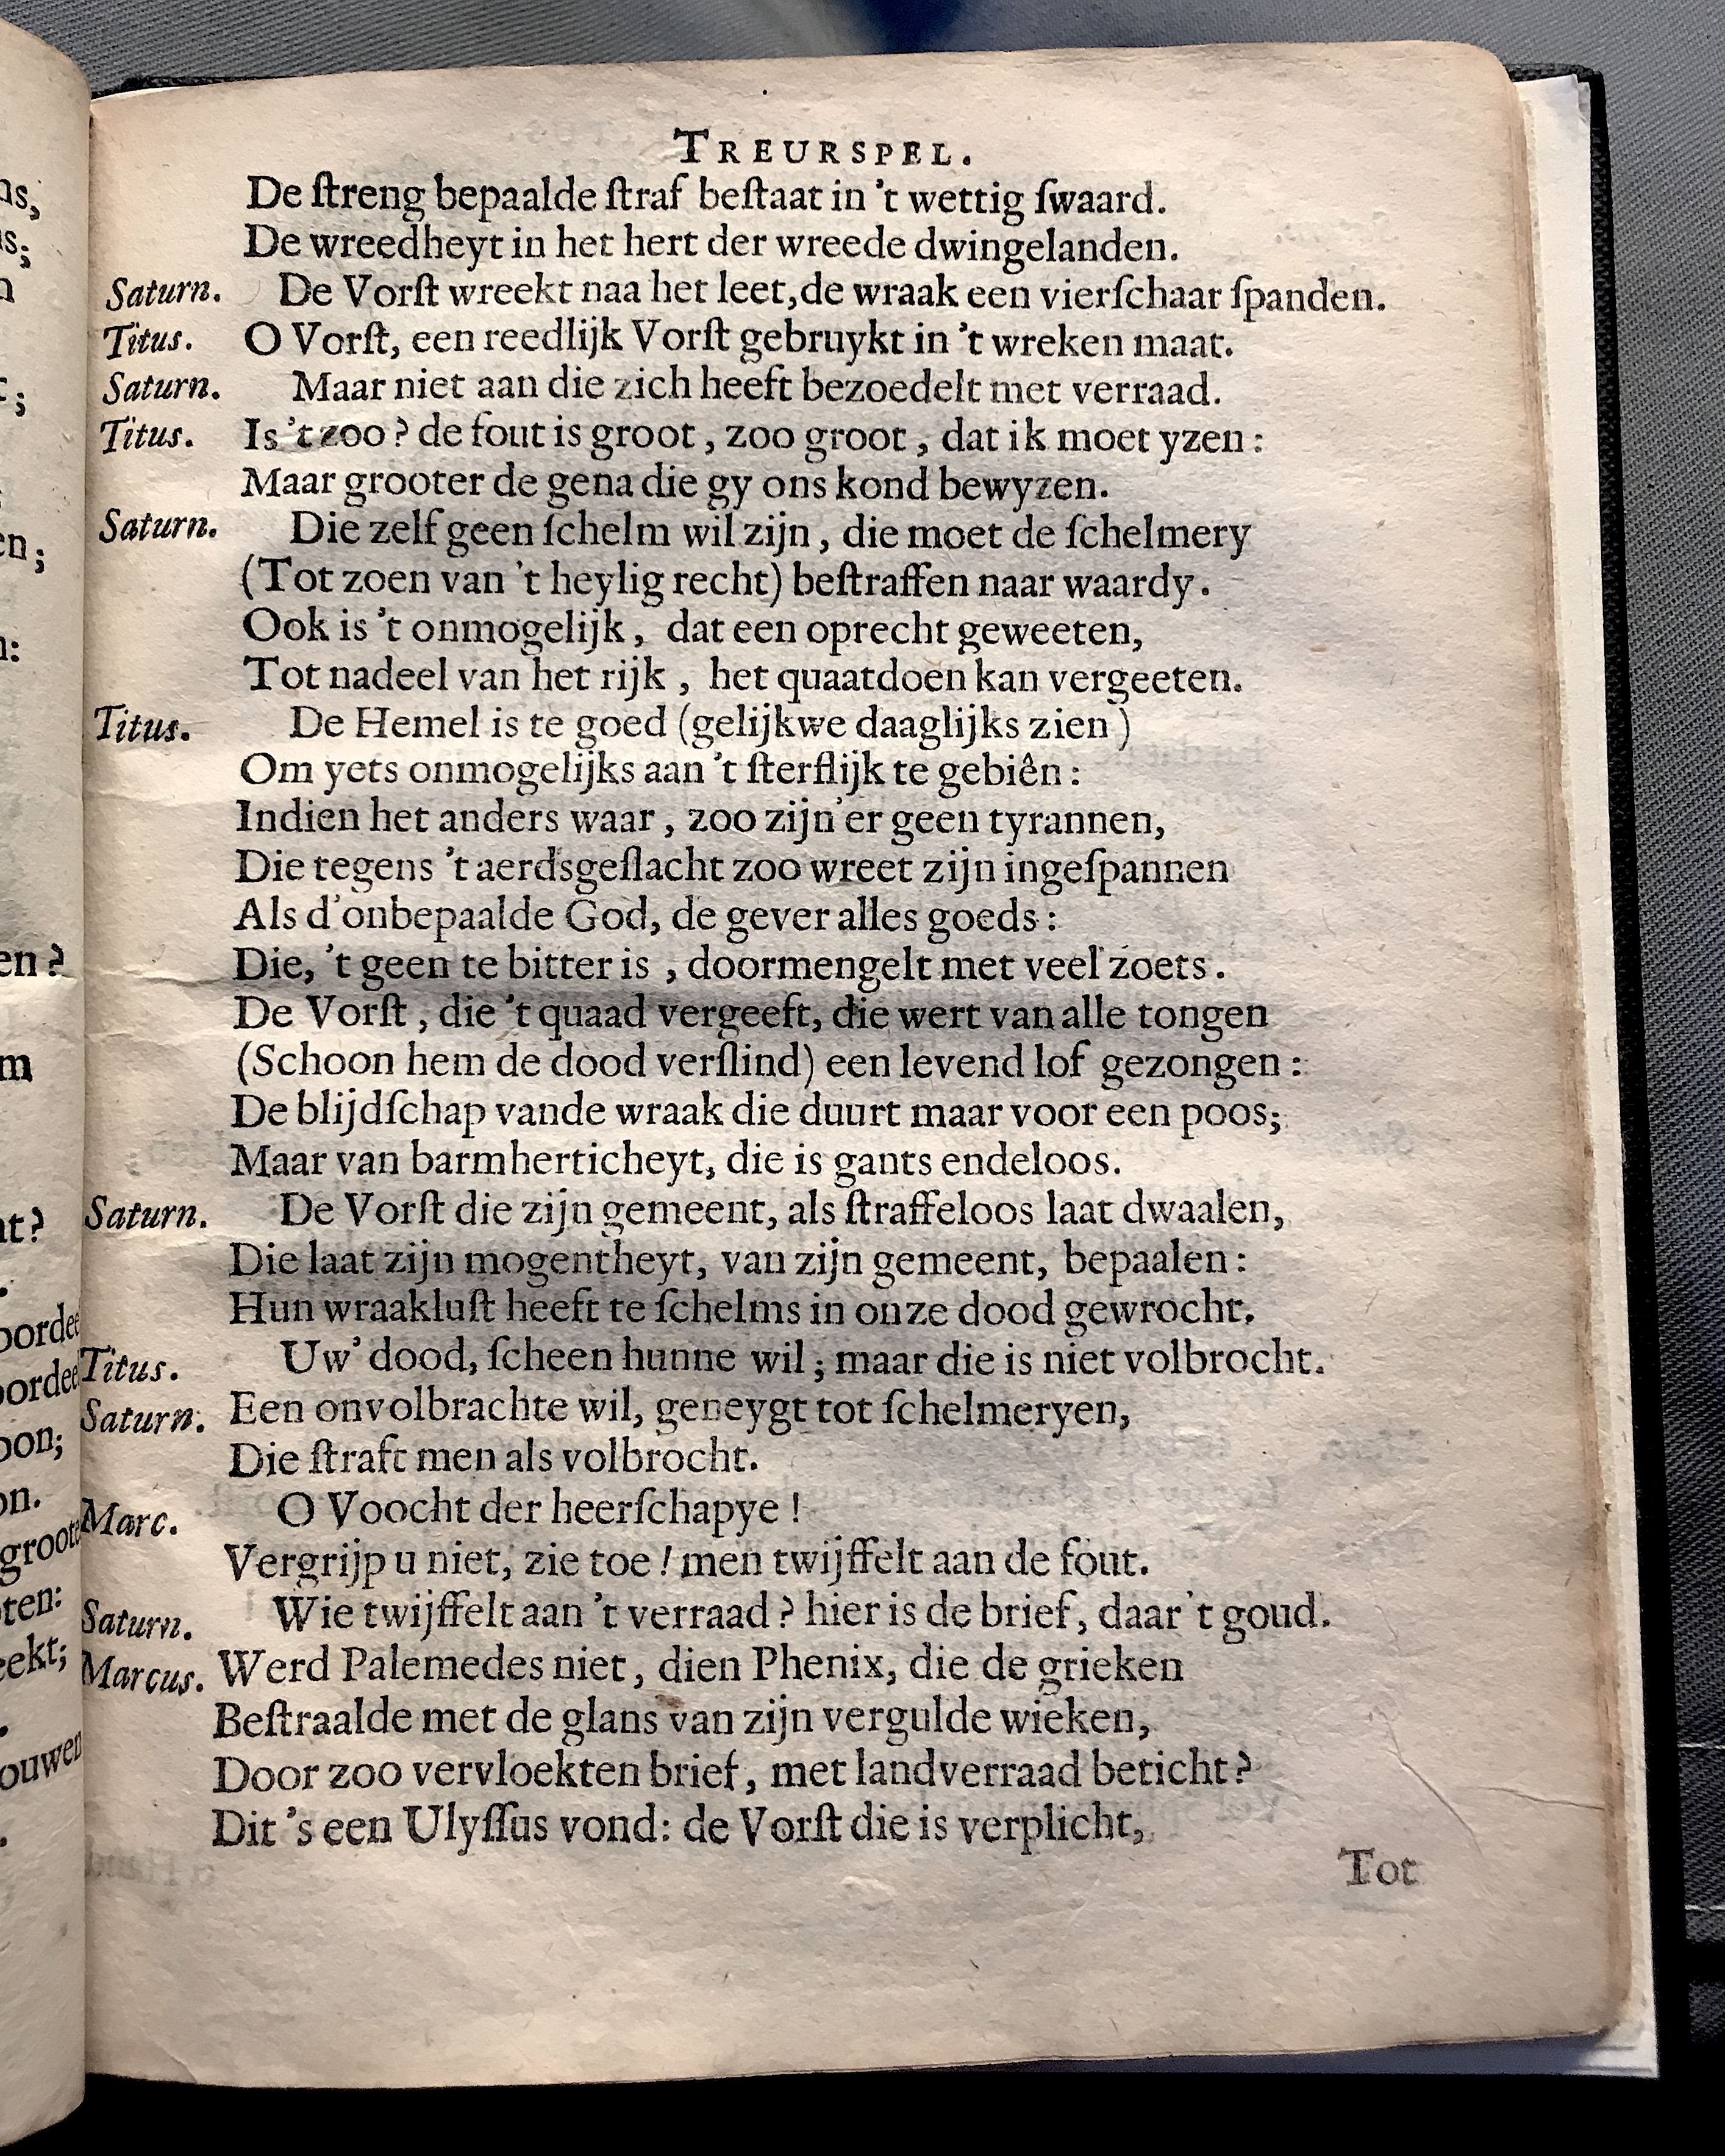 TREURSPEL.
De ſtreng bepaalde ſtraf beſtaat in 't wettig ſwaard.
De wreedheyt in het hert der wreede dwingelanden.
Saturn. De Vorſt wreekt naa het leet, de wraak een vierſchaar ſpanden.
Titus. O Vorſt, een reedlijk Vorſt gebruykt in 't wreken maat.
Saturn. Maar niet aan die zich heeft bezoedelt met verraad.
Titus. Is 't zoo? de fout is groot, zoo groot, dat ik moet yzen:
Maar grooter de gena die gy ons kond bewyzen.
Saturn. Die zelf geen ſchelm wil zijn, die moet de ſchelmery
(Tot zoen van 't heylig recht) beſtraffen naar waardy.
Ook is 't onmogelijk, dat een oprecht geweeten,
Tot nadeel van het rijk, het quaatdoen kan vergeeten.
Titus. De Hemel is te goed (gelijkwe daaglijks zien)
Om yets onmogelijks aan 't ſterflijk te gebiên:
Indien het anders waar, zoo zijn'er geen tyrannen,
Die tegens 't aerdsgeſlacht zoo wreet zijn ingeſpannen
Als d'onbepaalde God, de gever alles goeds:
Die, 't geen te bitter is, doormengelt met veel zoets.
De Vorſt, die 't quaad vergeeft, die wert van alle tongen
(Schoon hem de dood verſlind) een levend lof gezongen:
De blijdſchap vande wraak die duurt maar voor een poos;
Maar van barmherticheyt, die is gants endeloos.
Saturn. De Vorſt die zijn gemeent, als ſtraffeloos laat dwaalen,
Die laat zijn mogentheyt, van zijn gemeent, bepaalen:
Hun wraakluſt heeft te ſchelms in onze dood gewrocht.
Titus. Uw' dood, ſcheen hunne wil; maar die is niet volbrocht.
Saturn. Een onvolbrachte wil, geneygt tot ſchelmeryen,
Die ſtraft men als volbrocht.
Marc. O Voocht der heerſchapye!
Vergrijp u niet, zie toe! men twijffelt aan de fout.
Saturn. Wie twijffelt aan 't verraad? hier is de brief, daar 't goud.
Marcus. Werd Palemedes niet, dien Phenix, die de grieken
Beſtraalde met de glans van zijn vergulde wieken,
Door zoo vervloekten brief, met landverraad beticht?
Dit 's een Ulyſſus vond: de Vorſt die is verplicht,
Tot